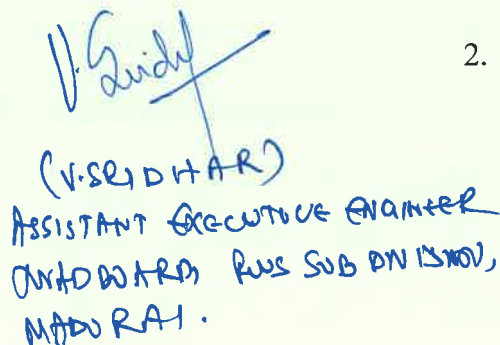 V. Sridhar
2.
(V. SRIDHAR)
ASSISTANT EXECUTIVE ENGINEER
SUB DIVISION,
MADURAI.